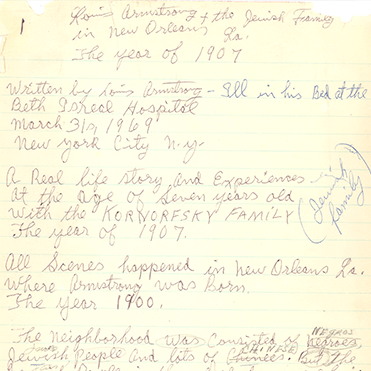 1
Louis Armstrong + the Jewish Family
in New Orleans La.
The year of 1907
Written by Louis Armstrong - Ill in his Bed at the
Beth Isreal Hospital
March 31, 1969
New York City N.Y.
A Real life story and Experiences
At the age of Seven years old
With the KORNORFSKY FAMILY
(Jewish Family)
The year of 1907.
All Scenes happened in New Orleans La.
Where Armstrong was Born.
The Year 1900.
NEGROS
The Neighborhood was Consisted of Negroes,
CHINESE
Jewish People and lots of Chinees. But the